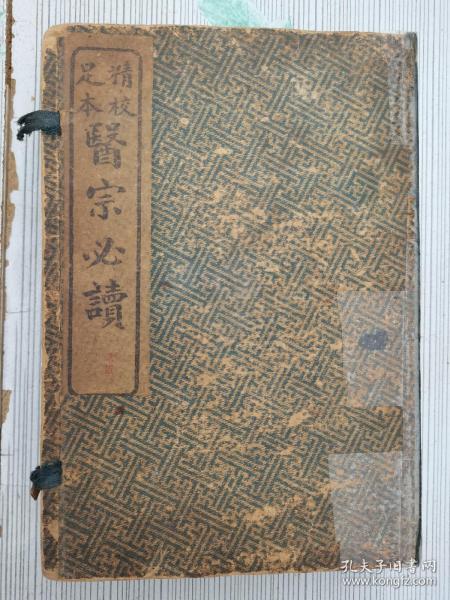 精校
足本
醫宗必讀
孔夫子旧书网
www.kongfz.com